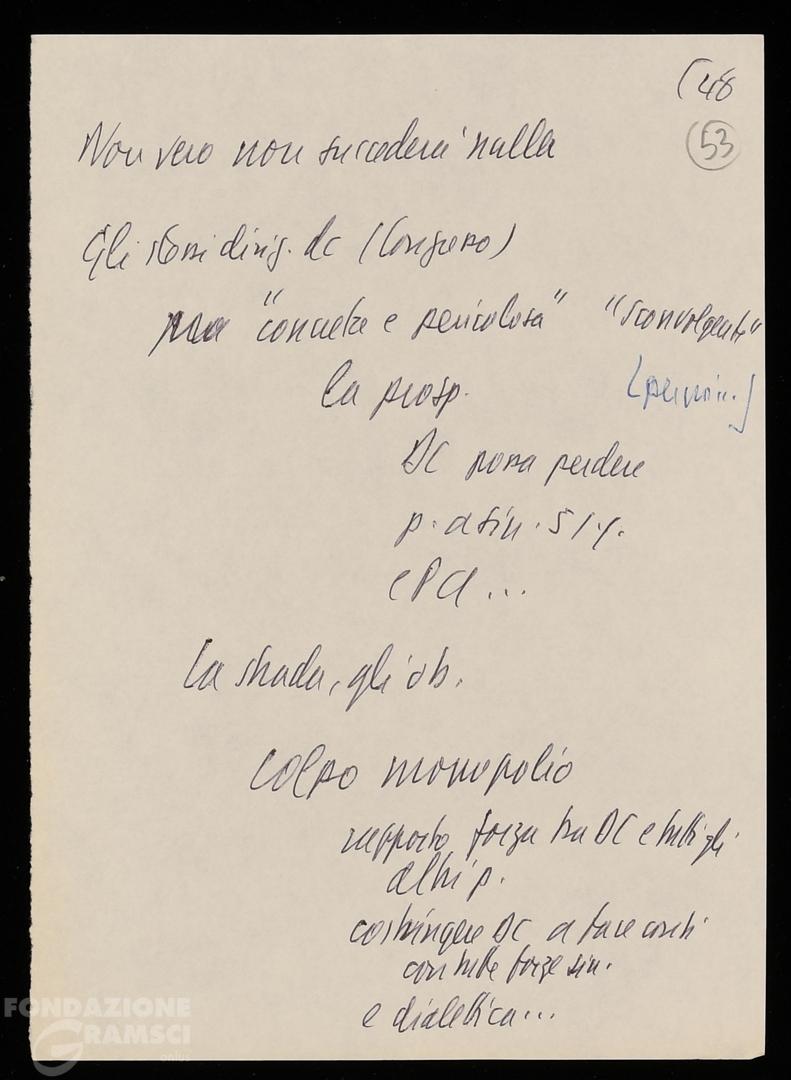 (48
53
Non vero non succederà nulla
Gli stessi dirig. dc (Congresso)
"concreta e pericolosa" "sconvolgente"
la prosp.
DC possa perdere
p. a sin. 51%
e PCI ...
La strada, gli ob.
colpo monopolio
rapporto forza tra DC e tutti gli
altri p.
costringere DC a fare conti
con tutte forze sin.
e dialettica...
FONDAZIONE
GRAMSCI
onlus